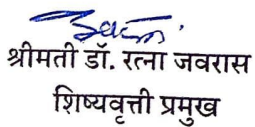 श्रीमती डॉ. रत्ना जवरास
शिष्यवृत्ती प्रमुख